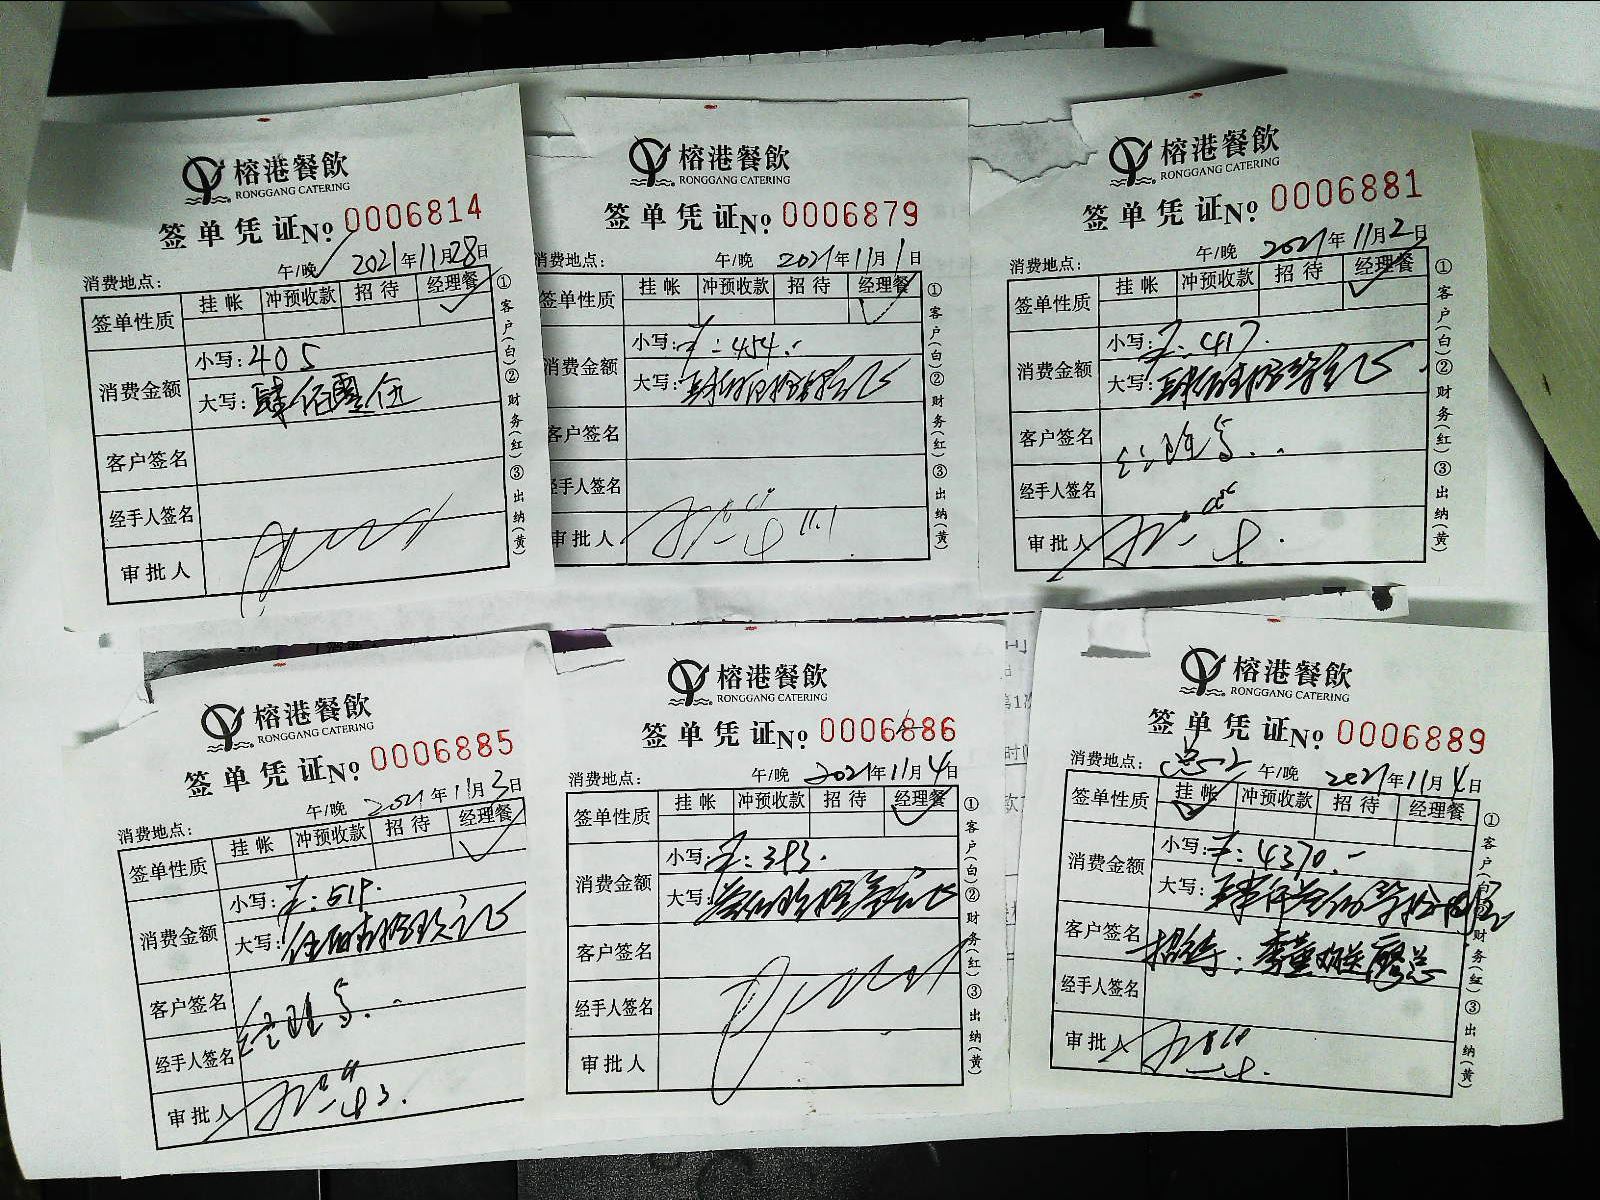 榕港餐飲
RONGGANG CATERING
签单凭证No: 0006814
消费地点: 午/晚 2021年11月28日
签单性质 挂帐 冲预收款 招待 经理餐
消费金额 小写: 405
大写: 肆佰零伍
客户签名
经手人签名
审批人
①客户(白)②财务(红)③出纳(黄)
榕港餐飲
RONGGANG CATERING
签单凭证No: 0006879
消费地点: 午/晚 2021年11月1日
签单性质 挂帐 冲预收款 招待 经理餐
消费金额 小写: 454.-
大写:
客户签名
经手人签名
审批人 11.1
①客户(白)②财务(红)③出纳(黄)
榕港餐飲
RONGGANG CATERING
签单凭证No: 0006881
消费地点: 午/晚 2021年11月2日
签单性质 挂帐 冲预收款 招待 经理餐
消费金额 小写: 417.
大写:
客户签名
经手人签名
审批人
①客户(白)②财务(红)③出纳(黄)
榕港餐飲
RONGGANG CATERING
签单凭证No: 0006885
消费地点: 午/晚 2021年11月3日
签单性质 挂帐 冲预收款 招待 经理餐
消费金额 小写: 519.
大写:
客户签名
经手人签名
审批人
榕港餐飲
RONGGANG CATERING
签单凭证No: 0006886
消费地点: 午/晚 2021年11月4日
签单性质 挂帐 冲预收款 招待 经理餐
消费金额 小写: 393.
大写:
客户签名
经手人签名
审批人
①客户(白)②财务(红)③出纳(黄)
榕港餐飲
RONGGANG CATERING
签单凭证No: 0006889
消费地点: 午/晚 2021年11月4日
签单性质 挂帐 冲预收款 招待 经理餐
消费金额 小写: 4370.-
大写:
客户签名 招待:
经手人签名
审批人
①客户(白)②财务(红)③出纳(黄)